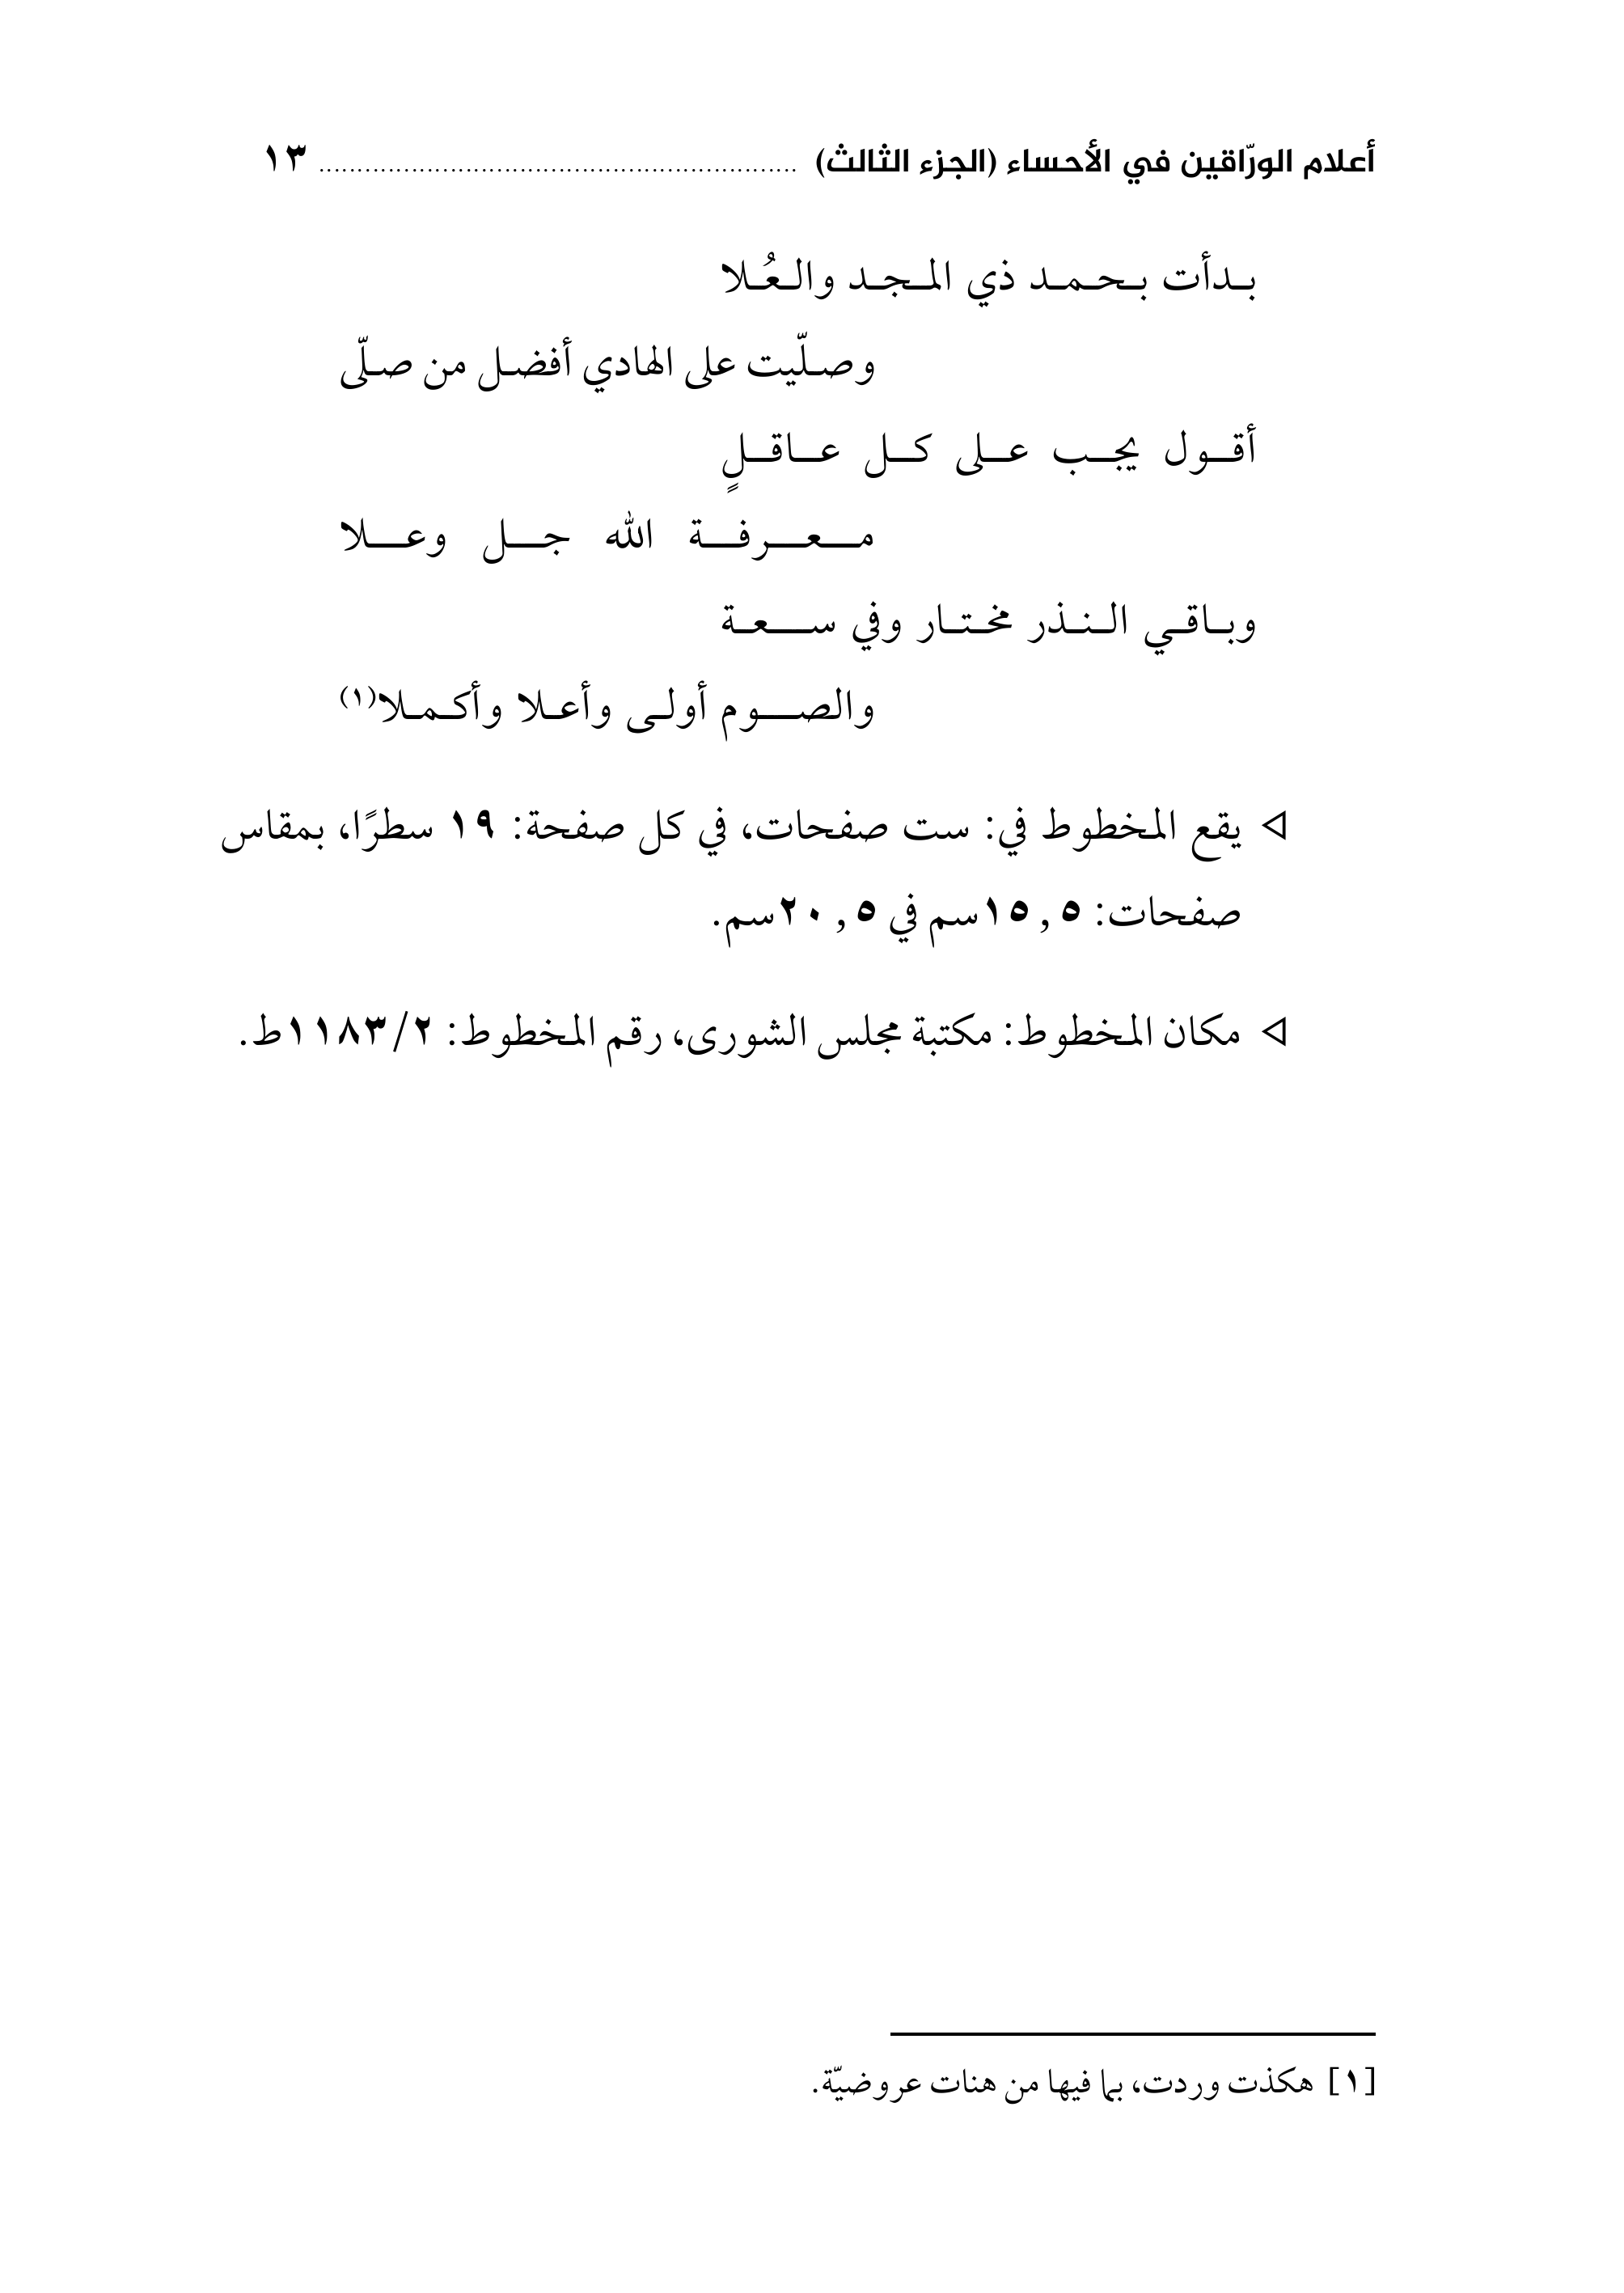 أعلام الورّاقين في الأحساء (الجزء الثالث) ............................................................. ١٣
بدأت بحمد ذي المجد والعُلا
وصلّيت على الهادي أفضل من صلّى
أقول يجب على كل عاقلٍ
معرفة الله جل وعلا
وباقي النذر مختار وفي سعة
والصوم أولى وأعلا وأكملا(١)
◁ يقع المخطوط في: ست صفحات، في كل صفحة: ١٩ سطرًا، بمقاس
صفحات: ١٥,٥سم في ٢٠,٥سم.
◁ مكان المخطوط: مكتبة مجلس الشورى، رقم المخطوط: ١١٨٣/٢ط.
[١] هكذت وردت، بما فيها من هنات عروضيّة.